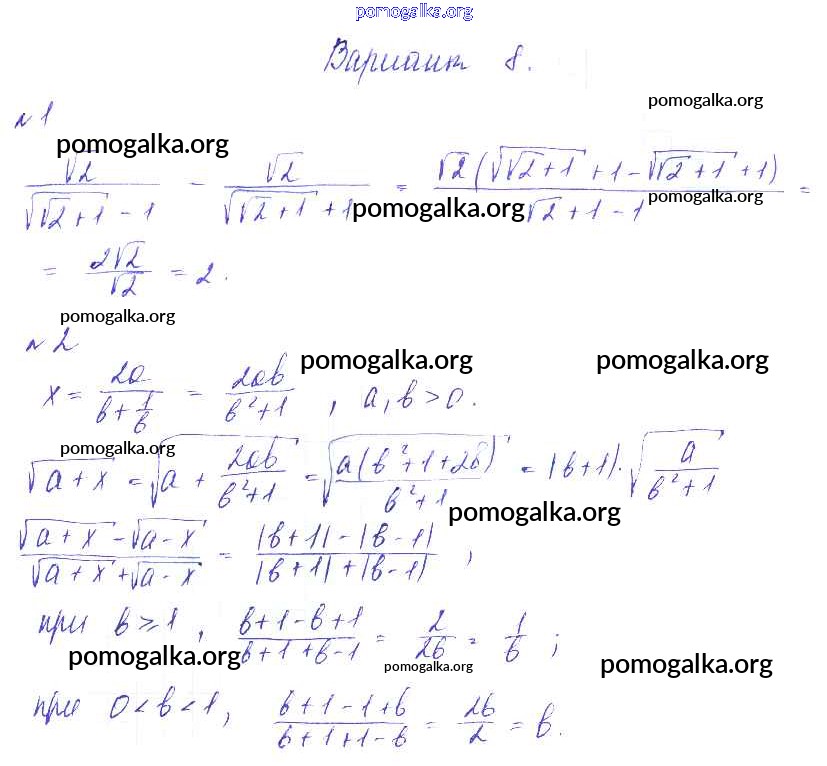 pomogalka.org
Вариант 8.
pomogalka.org
№1
pomogalka.org
√2/(√(√2+1) - 1) - √2/(√(√2+1) + 1) = √2(√(√2+1) + 1 - √(√2+1) + 1)/(√2 + 1 - 1) =
pomogalka.org pomogalka.org
= 2√2/√2 = 2.
pomogalka.org
№2
pomogalka.org pomogalka.org
x = 2a/(b + 1/b) = 2ab/(b²+1) , a, b > 0.
pomogalka.org
√(a + x) = √(a + 2ab/(b²+1)) = √(a(b²+1+2b)/(b²+1)) = |b+1|·√(a/(b²+1))
pomogalka.org
(√(a+x) - √(a-x))/(√(a+x) + √(a-x)) = (|b+1| - |b-1|)/(|b+1| + |b-1|) ,
при b ≥ 1 , (b+1-b+1)/(b+1+b-1) = 2/2b = 1/b ;
pomogalka.org pomogalka.org pomogalka.org
при 0 < b < 1, (b+1-1+b)/(b+1+1-b) = 2b/2 = b.